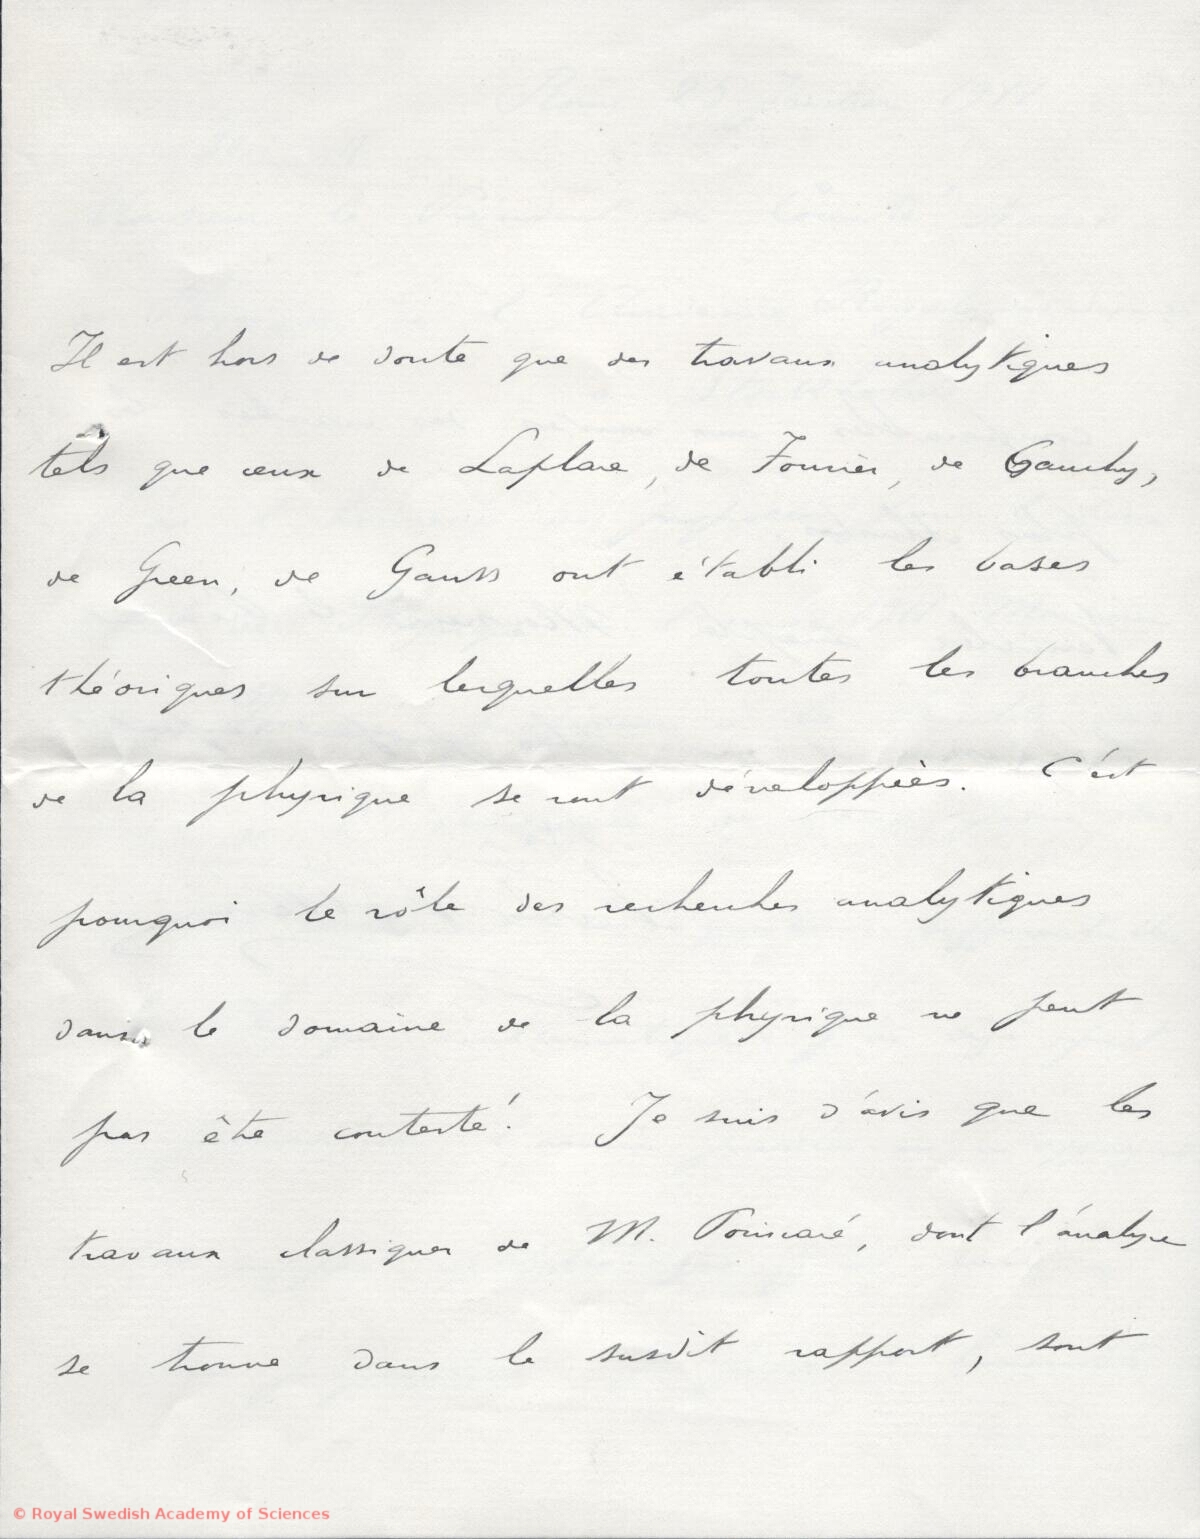 Il est hors de doute que des travaux analytiques
tels que ceux de Laplace, de Fourier, de Cauchy,
de Green, de Gauss ont établi les bases
théoriques sur lesquelles toutes les branches
de la physique se sont développées. C'est
pourquoi le rôle des recherches analytiques
dans le domaine de la physique ne peut
pas être contesté. Je suis d'avis que les
travaux classiques de M. Poincaré, dont l'analyse
se trouve dans le susdit rapport, sont
© Royal Swedish Academy of Sciences